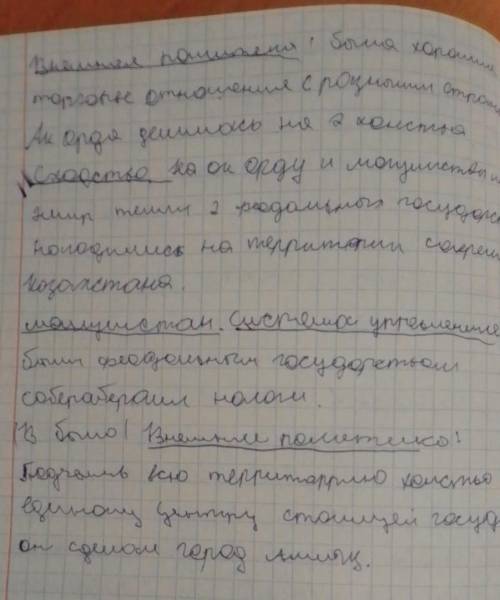 Внешняя политика: была хорошие
торговые отношения с разными стран
Ак орда делилось на 2 ханства
Сходство на ак орду и
2 феодальных государс
находились на территории
казахстана.
могулистан. система управление
были феодальным государством
налоги.
В было! Внешние политика!
Подчинить всю территоррию ханства
единому центру столицей госуд
он сделал город Алмалык.